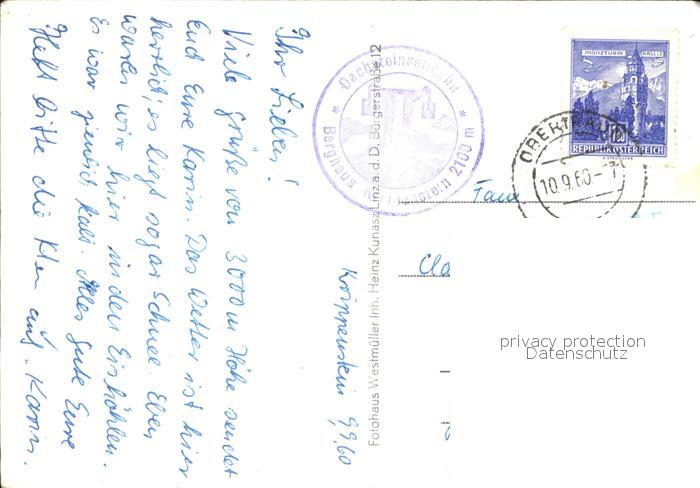 Krippenstein 9.9.60
Ihr Lieben!
Viele Grüße von 3000 m Höhe sendet
Euch Eure Karin. Das Wetter ist hier
herrlich, es liegt sogar Schnee. Eben
waren wir hier in den Eishöhlen.
Es war ziemlich kalt. Alles Gute Eure
Karin.
Hebt bitte die Ktn auf.
Fotohaus Westmüller Inh. Heinz Kunasz, Linz a. d. D., Bürgerstraße 12
Dachsteinseilbahn
Berghaus Krippenstein 2100 m
MÜNZTURM HALL I.
1.80
REPUBLIK ÖSTERREICH
OBERTRAUN
10.9.60-7
Fam
privacy protection
Datenschutz